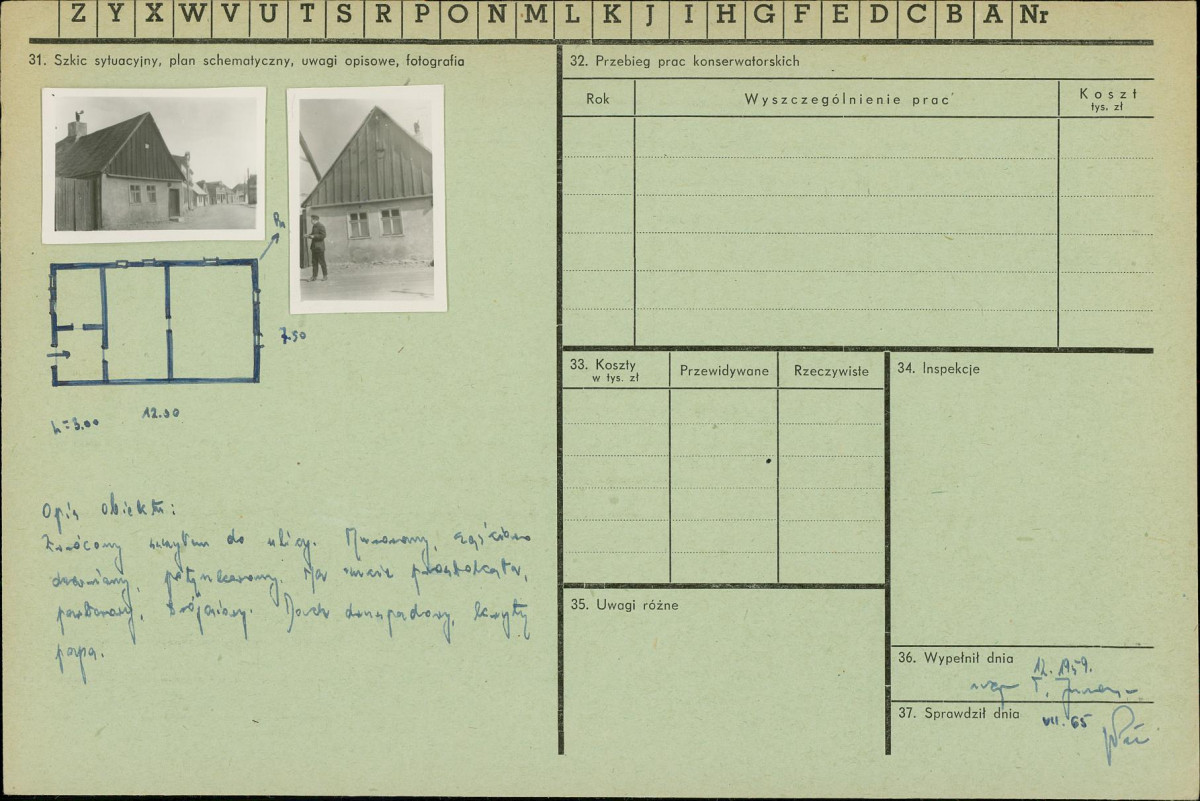 Z Y X W V U T S R P O N M L K J I H G F E D C B A Nr
31. Szkic sytuacyjny, plan schematyczny, uwagi opisowe, fotografia
Pn
7.50
12.90
h = 3.00
Opis obiektu:
Zwrócony szczytem do ulicy. Murowany, częściowo
drewniany, potynkowany. Na rzucie prostokąta,
parterowy, trójosiowy. Dach dwuspadowy, kryty
papa.
32. Przebieg prac konserwatorskich
Rok
Wyszczególnienie prac
Koszt
tys. zł
33. Koszty
w tys. zł
Przewidywane
Rzeczywiste
34. Inspekcje
35. Uwagi różne
36. Wypełnił dnia
12. 1959.
mgr T.
37. Sprawdził dnia
VII. 65